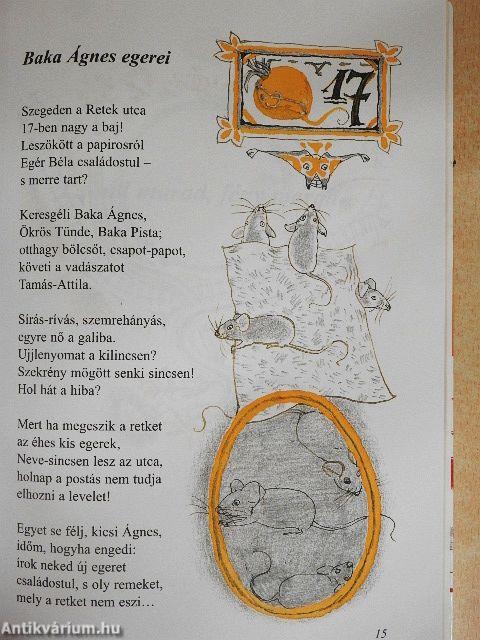 Baka Ágnes egerei
17
Szegeden a Retek utca
17-ben nagy a baj!
Leszökött a papirosról
Egér Béla családostul –
s merre tart?
Keresgéli Baka Ágnes,
Ökrös Tünde, Baka Pista;
otthagy bölcsőt, csapot-papot,
követi a vadászatot
Tamás-Attila.
Sírás-rívás, szemrehányás,
egyre nő a galiba.
Ujjlenyomat a kilincsen?
Szekrény mögött senki sincsen!
Hol hát a hiba?
Mert ha megeszik a retket
az éhes kis egerek,
Neve-sincsen lesz az utca,
holnap a postás nem tudja
elhozni a levelet!
Egyet se félj, kicsi Ágnes,
időm, hogyha engedi:
írok neked új egeret
családostul, s oly remeket,
mely a retket nem eszi…
15
Antikvárium.hu